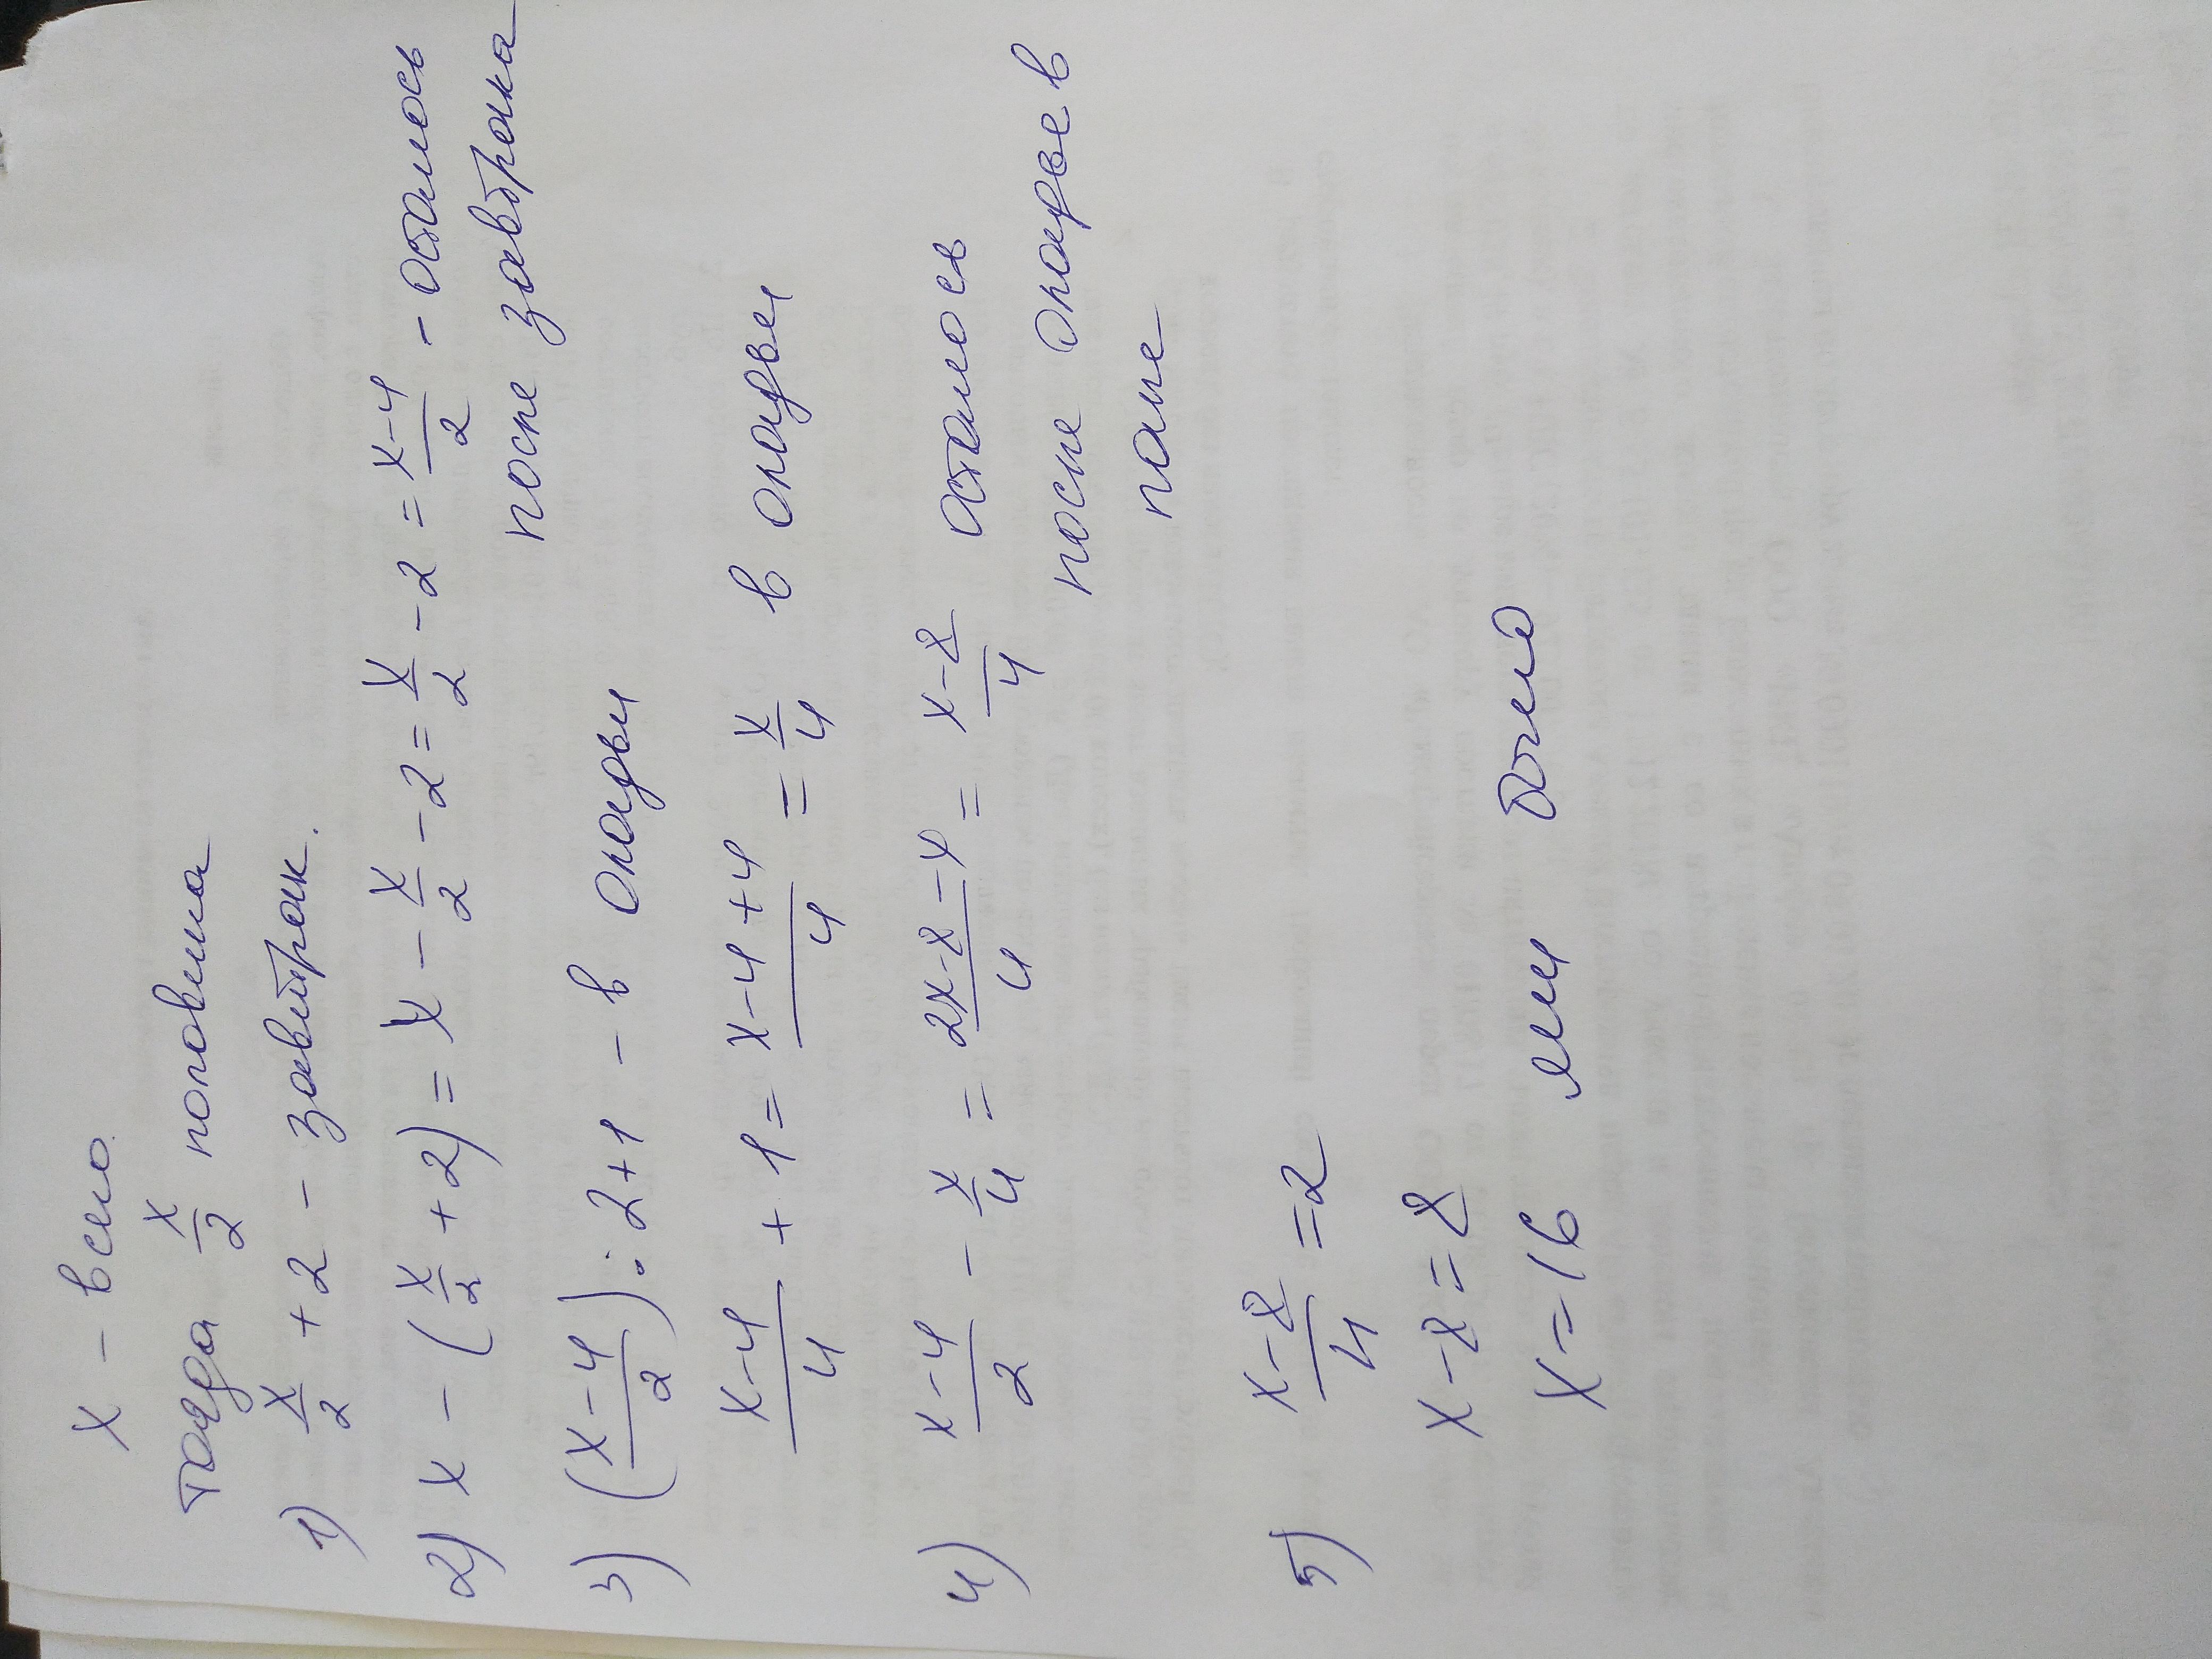 x - всего.
тогда x/2 половина
1) x/2 + 2 - завтрак.
2) x - (x/2 + 2) = x - x/2 - 2 = x/2 - 2 = x-4/2 - осталось
после завтрака
3) (x-4/2) : 2+1 - в оладьи
x-4/4 + 1 = x-4+4/4 = x/4 в оладьи
4) x-4/2 - x/4 = 2x-8-x/4 = x-8/4 осталось
после оладьев
папе
5) x-8/4 = 2
x-8=8
x=16 яиц было